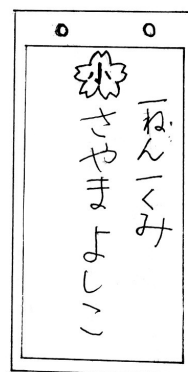 一ねん一くみ
小
さやま よしこ